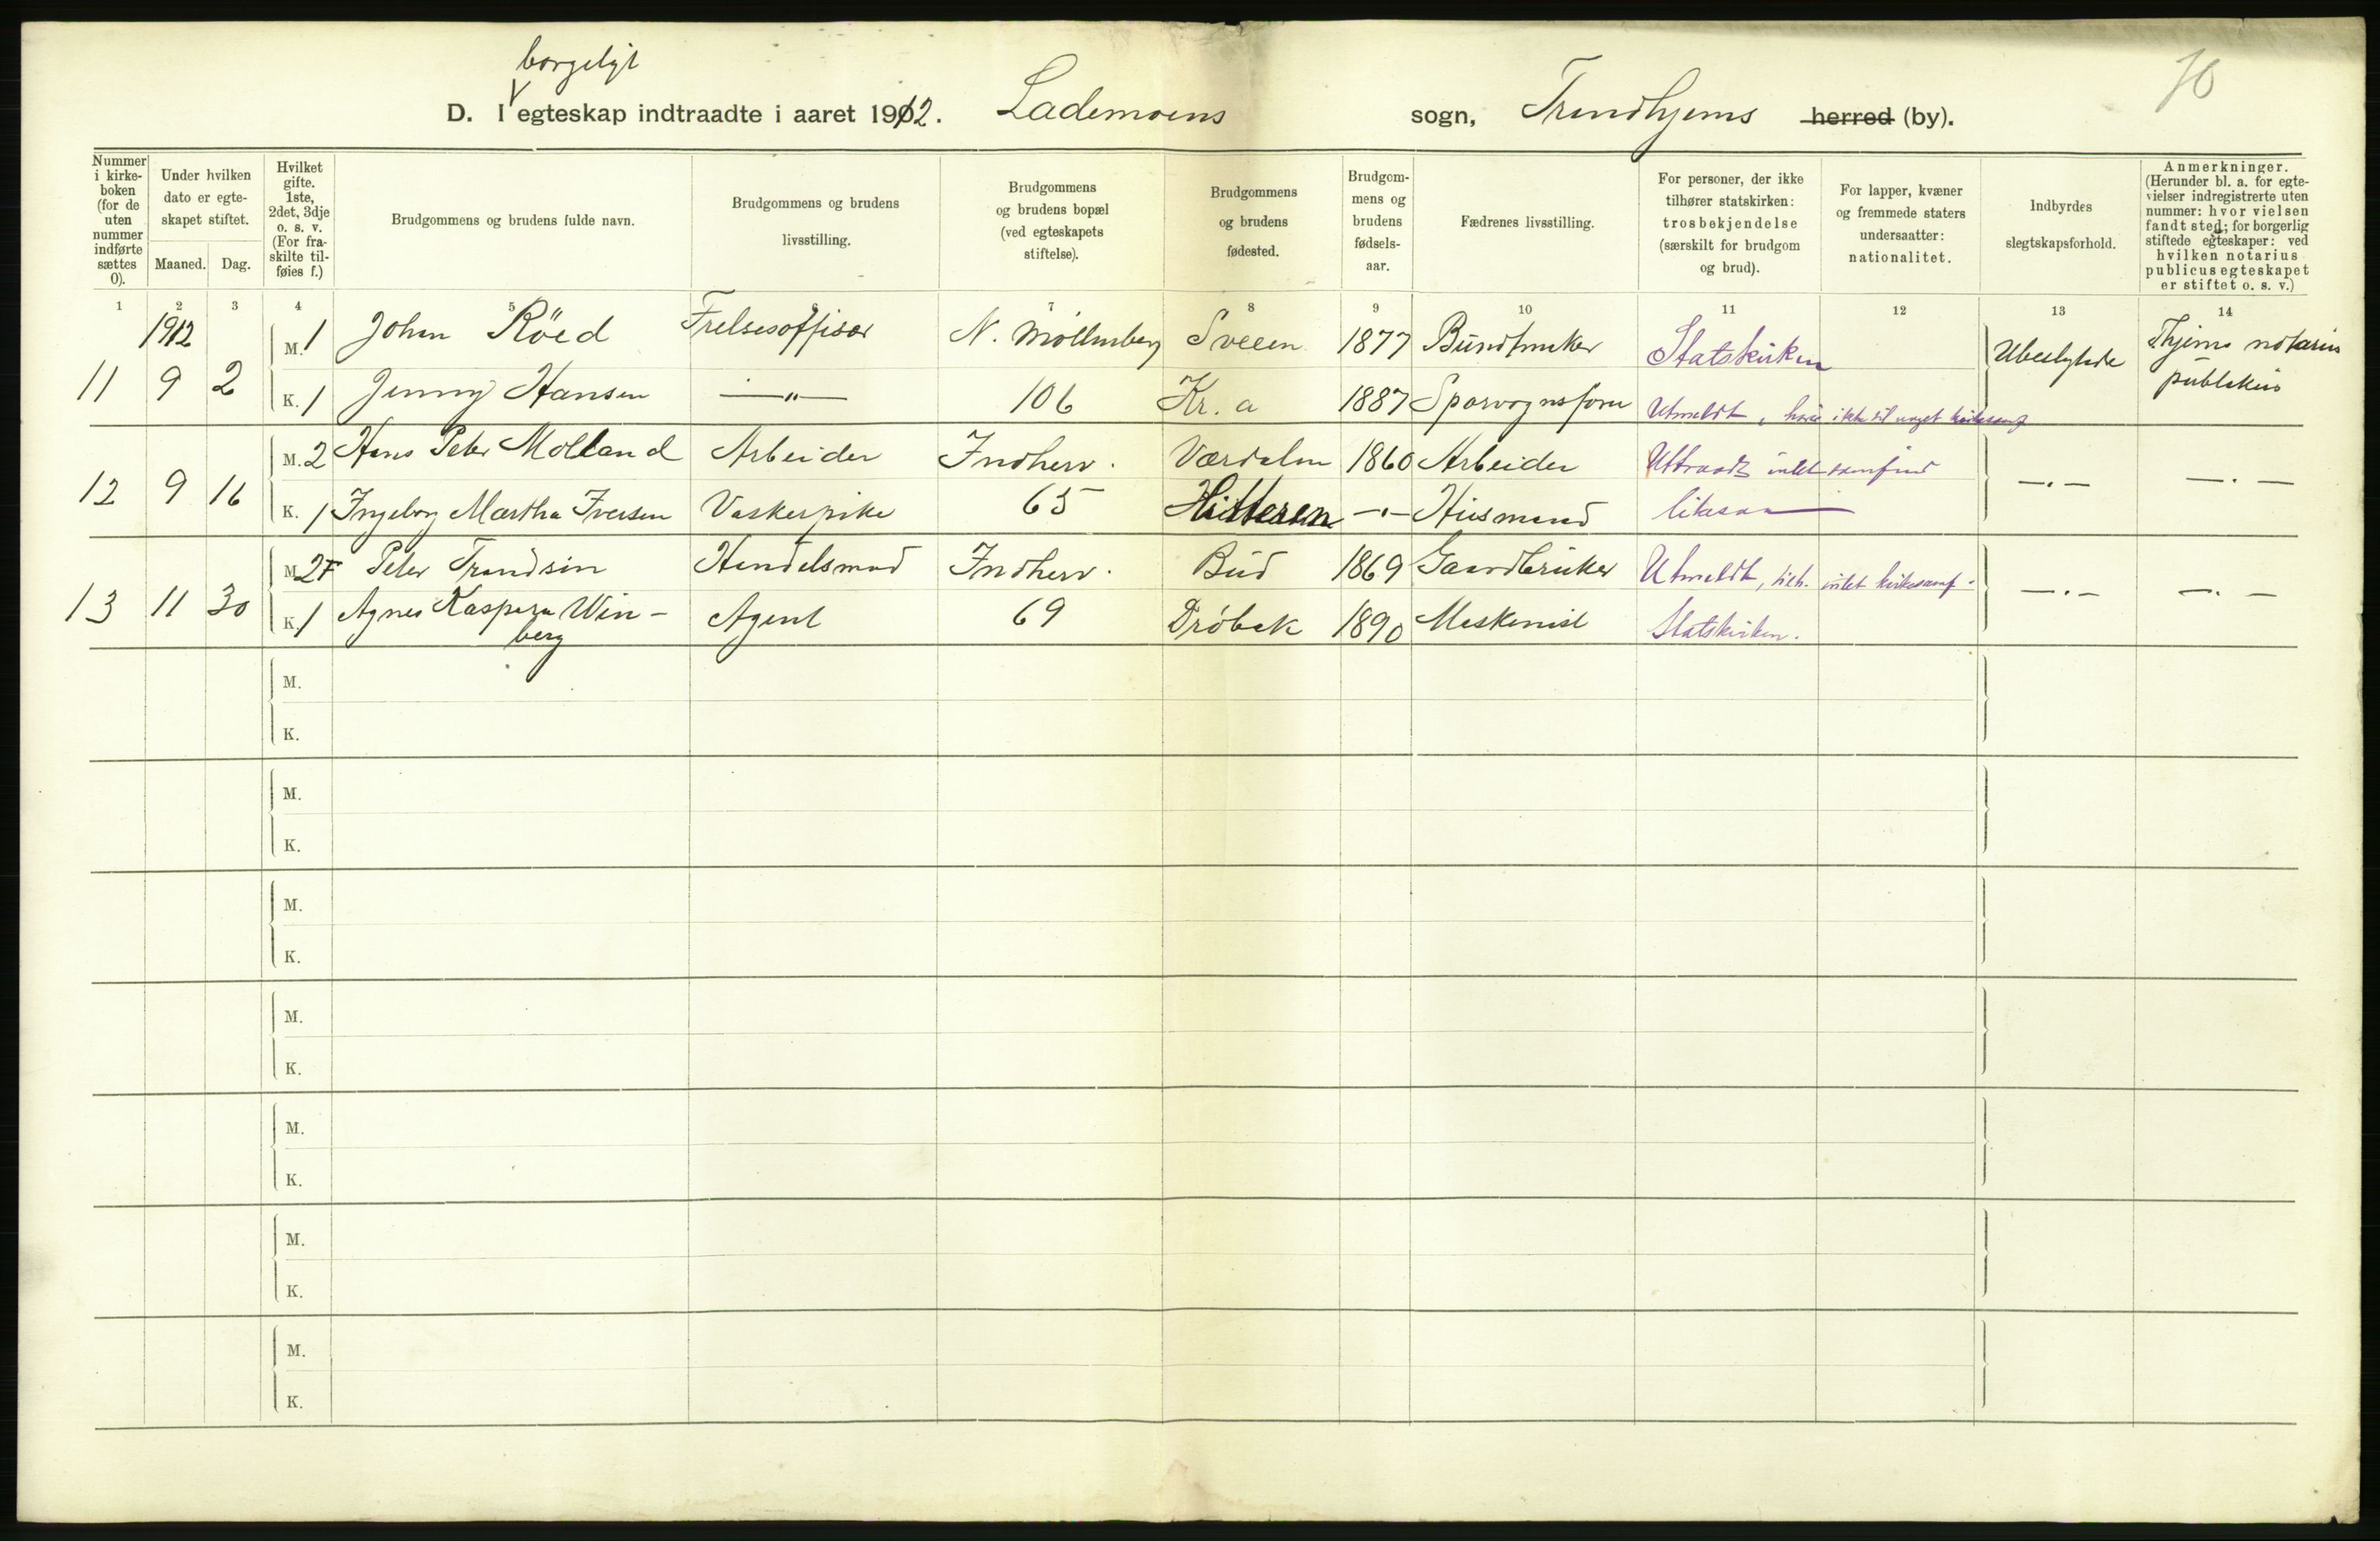 borgeligt
70
D. I egteskap indtraadte i aaret 1912. Lademoens sogn, Trondhjems herred (by).
Nummer i kirke-boken (for de uten nummer indførte sættes 0).
Under hvilken dato er egte-skapet stiftet.
Maaned. Dag.
Hvilket gifte. 1ste, 2det, 3dje o. s. v. (For fra-skilte til-føies f.)
Brudgommens og brudens fulde navn.
Brudgommens og brudens livsstilling.
Brudgommens og brudens bopæl (ved egteskapets stiftelse).
Brudgommens og brudens fødested.
Brudgom-mens og brudens fødsels-aar.
Fædrenes livsstilling.
For personer, der ikke tilhører statskirken: trosbekjendelse (særskilt for brudgom og brud).
For lapper, kvæner og fremmede staters undersaatter: nationalitet.
Indbyrdes slegtskapsforhold.
Anmerkninger. (Herunder bl. a. for egte-vielser indregistrerte uten nummer: hvor vielsen fandt sted; for borgerlig stiftede egteskaper: ved hvilken notarius publicus egteskapet er stiftet o. s. v.)
1 2 3 4 5 6 7 8 9 10 11 12 13 14
1912
M. 1 Johan Röed Frelsesoffiser N. Möllenberg Sveen 1877 Buntmaker Statskirken Ubeslegtede Thjems notarius
11 9 2 K. 1 Jenny Hansen —"— 106 Kr. a 1887 Sporvognsform Utmeldt, hører ikke til noget kirkesamf publikus
M. 2 Hans Peter Molland Arbeider Indherv. Værdalen 1860 Arbeider Uttraadt intet samfund
12 9 16 K. 1 Ingeborg Martha Iversen Vaskerpike 65 Hitteren —"— Husmand likesaa —"— —"—
M. 2 F Peter Trondsin Handelsmand Indherv. Bud 1869 Gaardbruker Utmeldt, intet kirkesamf.
13 11 30 K. 1 Agnes Kaspara Win- Agent 69 Dröbak 1890 Maskinist Statskirken. —"— —"—
berg
M.
K.
M.
K.
M.
K.
M.
K.
M.
K.
M.
K.
M.
K.